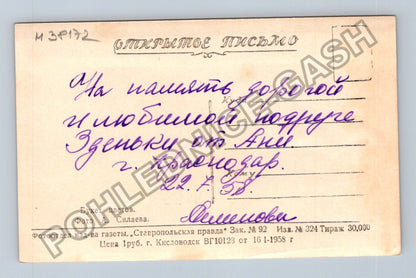 М 38172
ОТКРЫТОЕ ПИСЬМО
На память дорогой
и любимой подруге
Зденьки от Ани
г. Краснодар.
22.7.58.
Семенова
Куда
Кому
Букет цветов.
Фото А. Силаева.
Фотоотдел Изд-ва газеты „Ставропольская правда" Зак. № 92 Изд. № 324 Тираж 30,000
Цена 1руб. г. Кисловодск ВГ10123 от 16 I-1958 г
POHLEDNICE-GASH